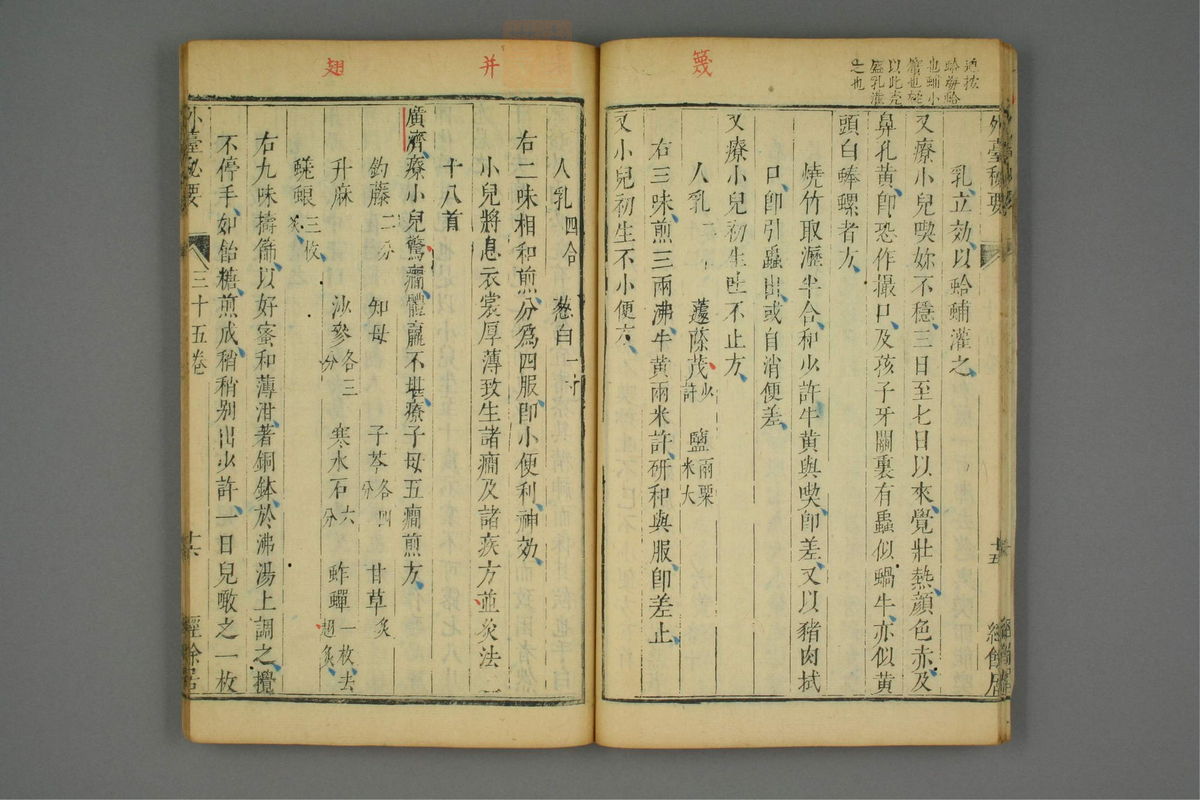 籛
過按
蛤海蛤
也蜅小
以此壳
盛乳灌
之也
外臺秘要
十五
經餘居
乳立効以蛤蜅灌之
又療小兒喫妳不穩三日至七日以來覺壯熱顏色赤及
鼻孔黃即恐作撮口及孩子牙關裏有蟲似蝸牛亦似黃
頭白蜯螺者方
燒竹取瀝半合和少許牛黃與喫即差又以豬肉拭
口即引蟲出或自消便差
又療小兒初生吐不止方
人乳二合 蘧蒢茂少許 鹽兩粟米大
右三味煎三兩沸牛黃兩米許研和與服即差止
又小兒初生不小便方
并
翅
人乳四合 葱白一寸
右二味相和煎分為四服即小便利神効
小兒將息衣裳厚薄致生諸癇及諸疾方並灸法一
十八首
廣濟療小兒驚癇體羸不堪療子母五癇煎方
鈎藤二分 知母 子芩各四分 甘草炙
升麻 沙參各三分 寒水石六分 蚱蟬一枚去翅炙
蜣蜋三枚炙
右九味擣篩以好蜜和薄泔著銅鉢於沸湯上調之攪
不停手如飴糖煎成稍稍别出少許一日兒噉之一枚
外臺秘要
三十五卷
十六
經餘居